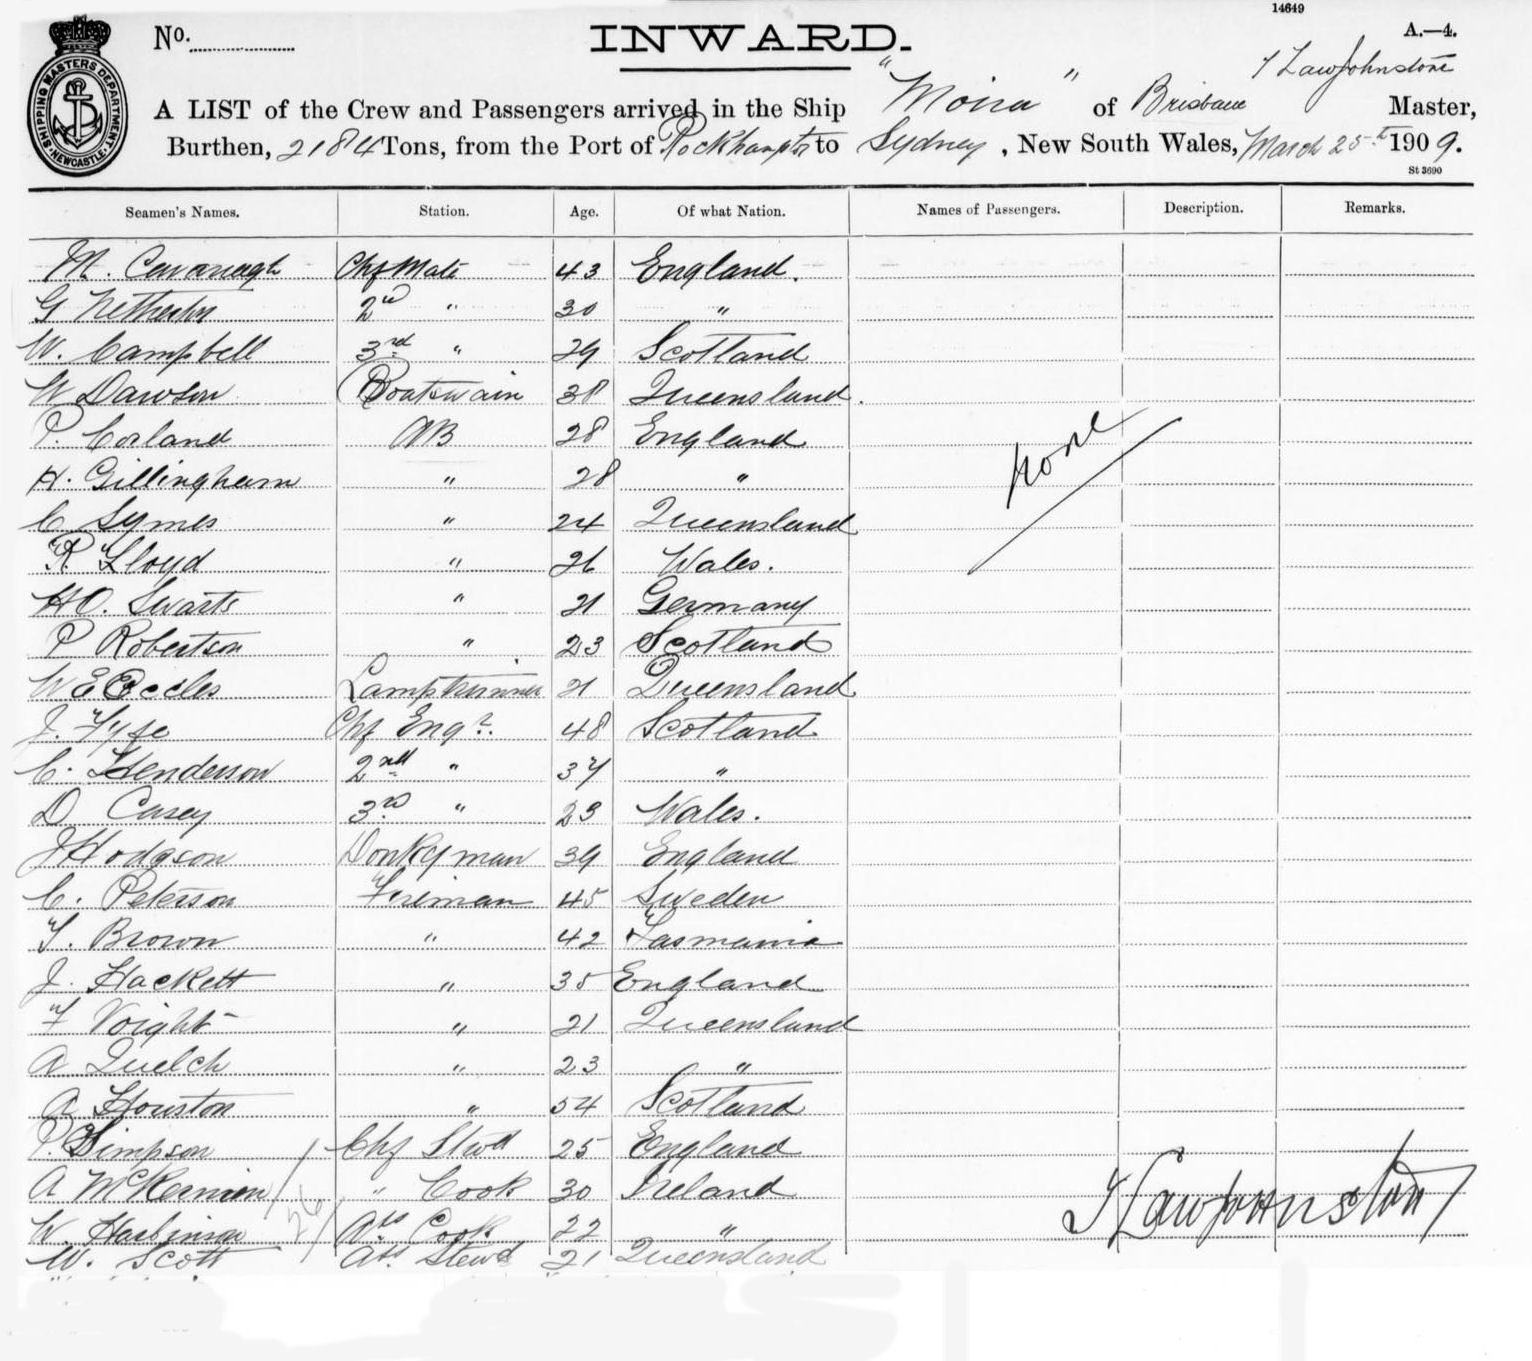 14649
No.
INWARD.
A.—4.
SHIPPING MASTERS DEPARTMENT. NEWCASTLE.
A LIST of the Crew and Passengers arrived in the Ship "Moira" of Brisbane LawJohnstone Master,
Burthen, 2184 Tons, from the Port of Rockhampton to Sydney, New South Wales, March 25th 1909.
St 3690
Seamen's Names. Station. Age. Of what Nation. Names of Passengers. Description. Remarks.
M. Cavanagh Chf Mate 43 England.
G 2nd " 30 "
W. Campbell 3rd " 29 Scotland
W Dawson Boatswain 38 Queensland.
P. Corland AB 28 England
none
H. Gillingham " 28 "
C Symes " 24 Queensland
R Lloyd " 26 Wales.
HO. Swarts " 21 Germany
P Robertson " 23 Scotland
W E Eccles Lamptrimmer 21 Queensland
J. Fyfe Chf Engr. 48 Scotland
C. Henderson 2nd " 37 "
D Casey 3rd " 23 Wales.
J Hodgson Donkyman 39 England
C. Peterson Fireman 45 Sweden
T. Brown " 42 Tasmania
J. Hackett " 35 England
F Voight " 21 Queensland
A Quelch " 23 "
A Houston " 54 Scotland
P. Simpson Chf Stwd 25 England
A McKernion " Cook 30 Ireland
26
LawJohnstone
W. Harbinson Ass Cook 22 "
W. Scott Ass Stewd 21 Queensland